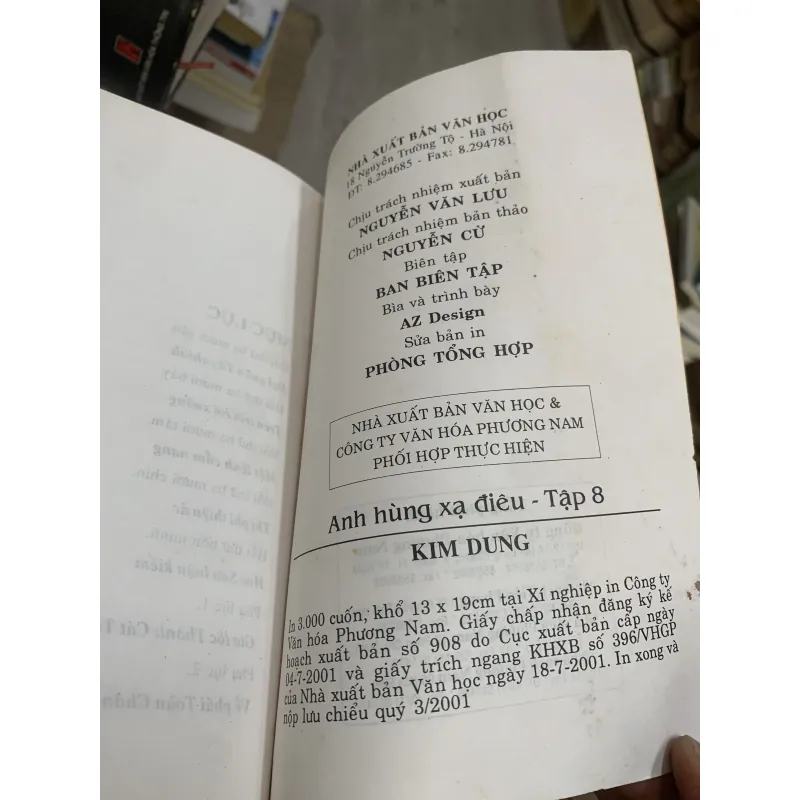 NHÀ XUẤT BẢN VĂN HỌC
18 Nguyễn Trường Tộ - Hà Nội
ĐT: 8.294685 - Fax: 8.294781
Chịu trách nhiệm xuất bản
NGUYỄN VĂN LƯU
Chịu trách nhiệm bản thảo
NGUYỄN CỪ
Biên tập
BAN BIÊN TẬP
Bìa và trình bày
AZ Design
Sửa bản in
PHÒNG TỔNG HỢP
NHÀ XUẤT BẢN VĂN HỌC &
CÔNG TY VĂN HÓA PHƯƠNG NAM
PHỐI HỢP THỰC HIỆN
Anh hùng xạ điêu - Tập 8
KIM DUNG
In 3.000 cuốn, khổ 13 x 19cm tại Xí nghiệp in Công ty
Văn hóa Phương Nam. Giấy chấp nhận đăng ký kế
hoạch xuất bản số 908 do Cục xuất bản cấp ngày
04-7-2001 và giấy trích ngang KHXB số 396/VHGP
của Nhà xuất bản Văn học ngày 18-7-2001. In xong và
nộp lưu chiểu quý 3/2001